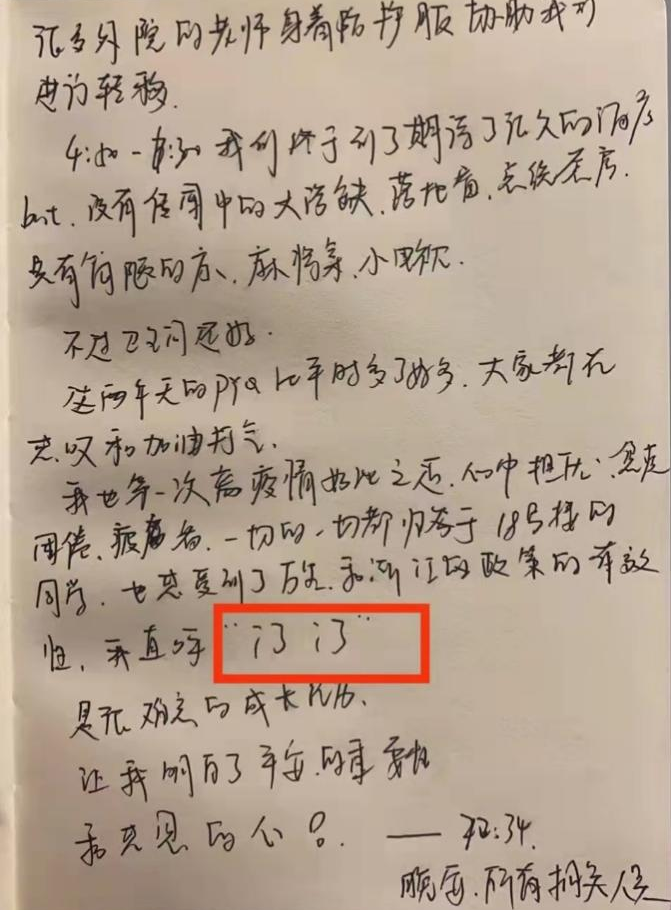 很多外院的老师身着防护服协助我们
进行轻移.
4:00 - 6:30 我们终于到了期待了很久的酒店
but. 没有传闻中的大浴缸、落地窗、总统套房.
只有简陋的床、麻将桌、小电视.
不过卫生间还好.
这两年天的PYQ比平时多了好多. 大家都在
感叹和加油打气.
我也第一次离疫情如此之近. 心中担忧、
困倦、疲惫着. 一切的一切都归咎于18号楼的
同学. 也感受到了 和浙江的政策的有效
性, 我直呼 " "
是很难忘的成长
让我明白了平安的重要性
和感恩的心
晚安. 所有